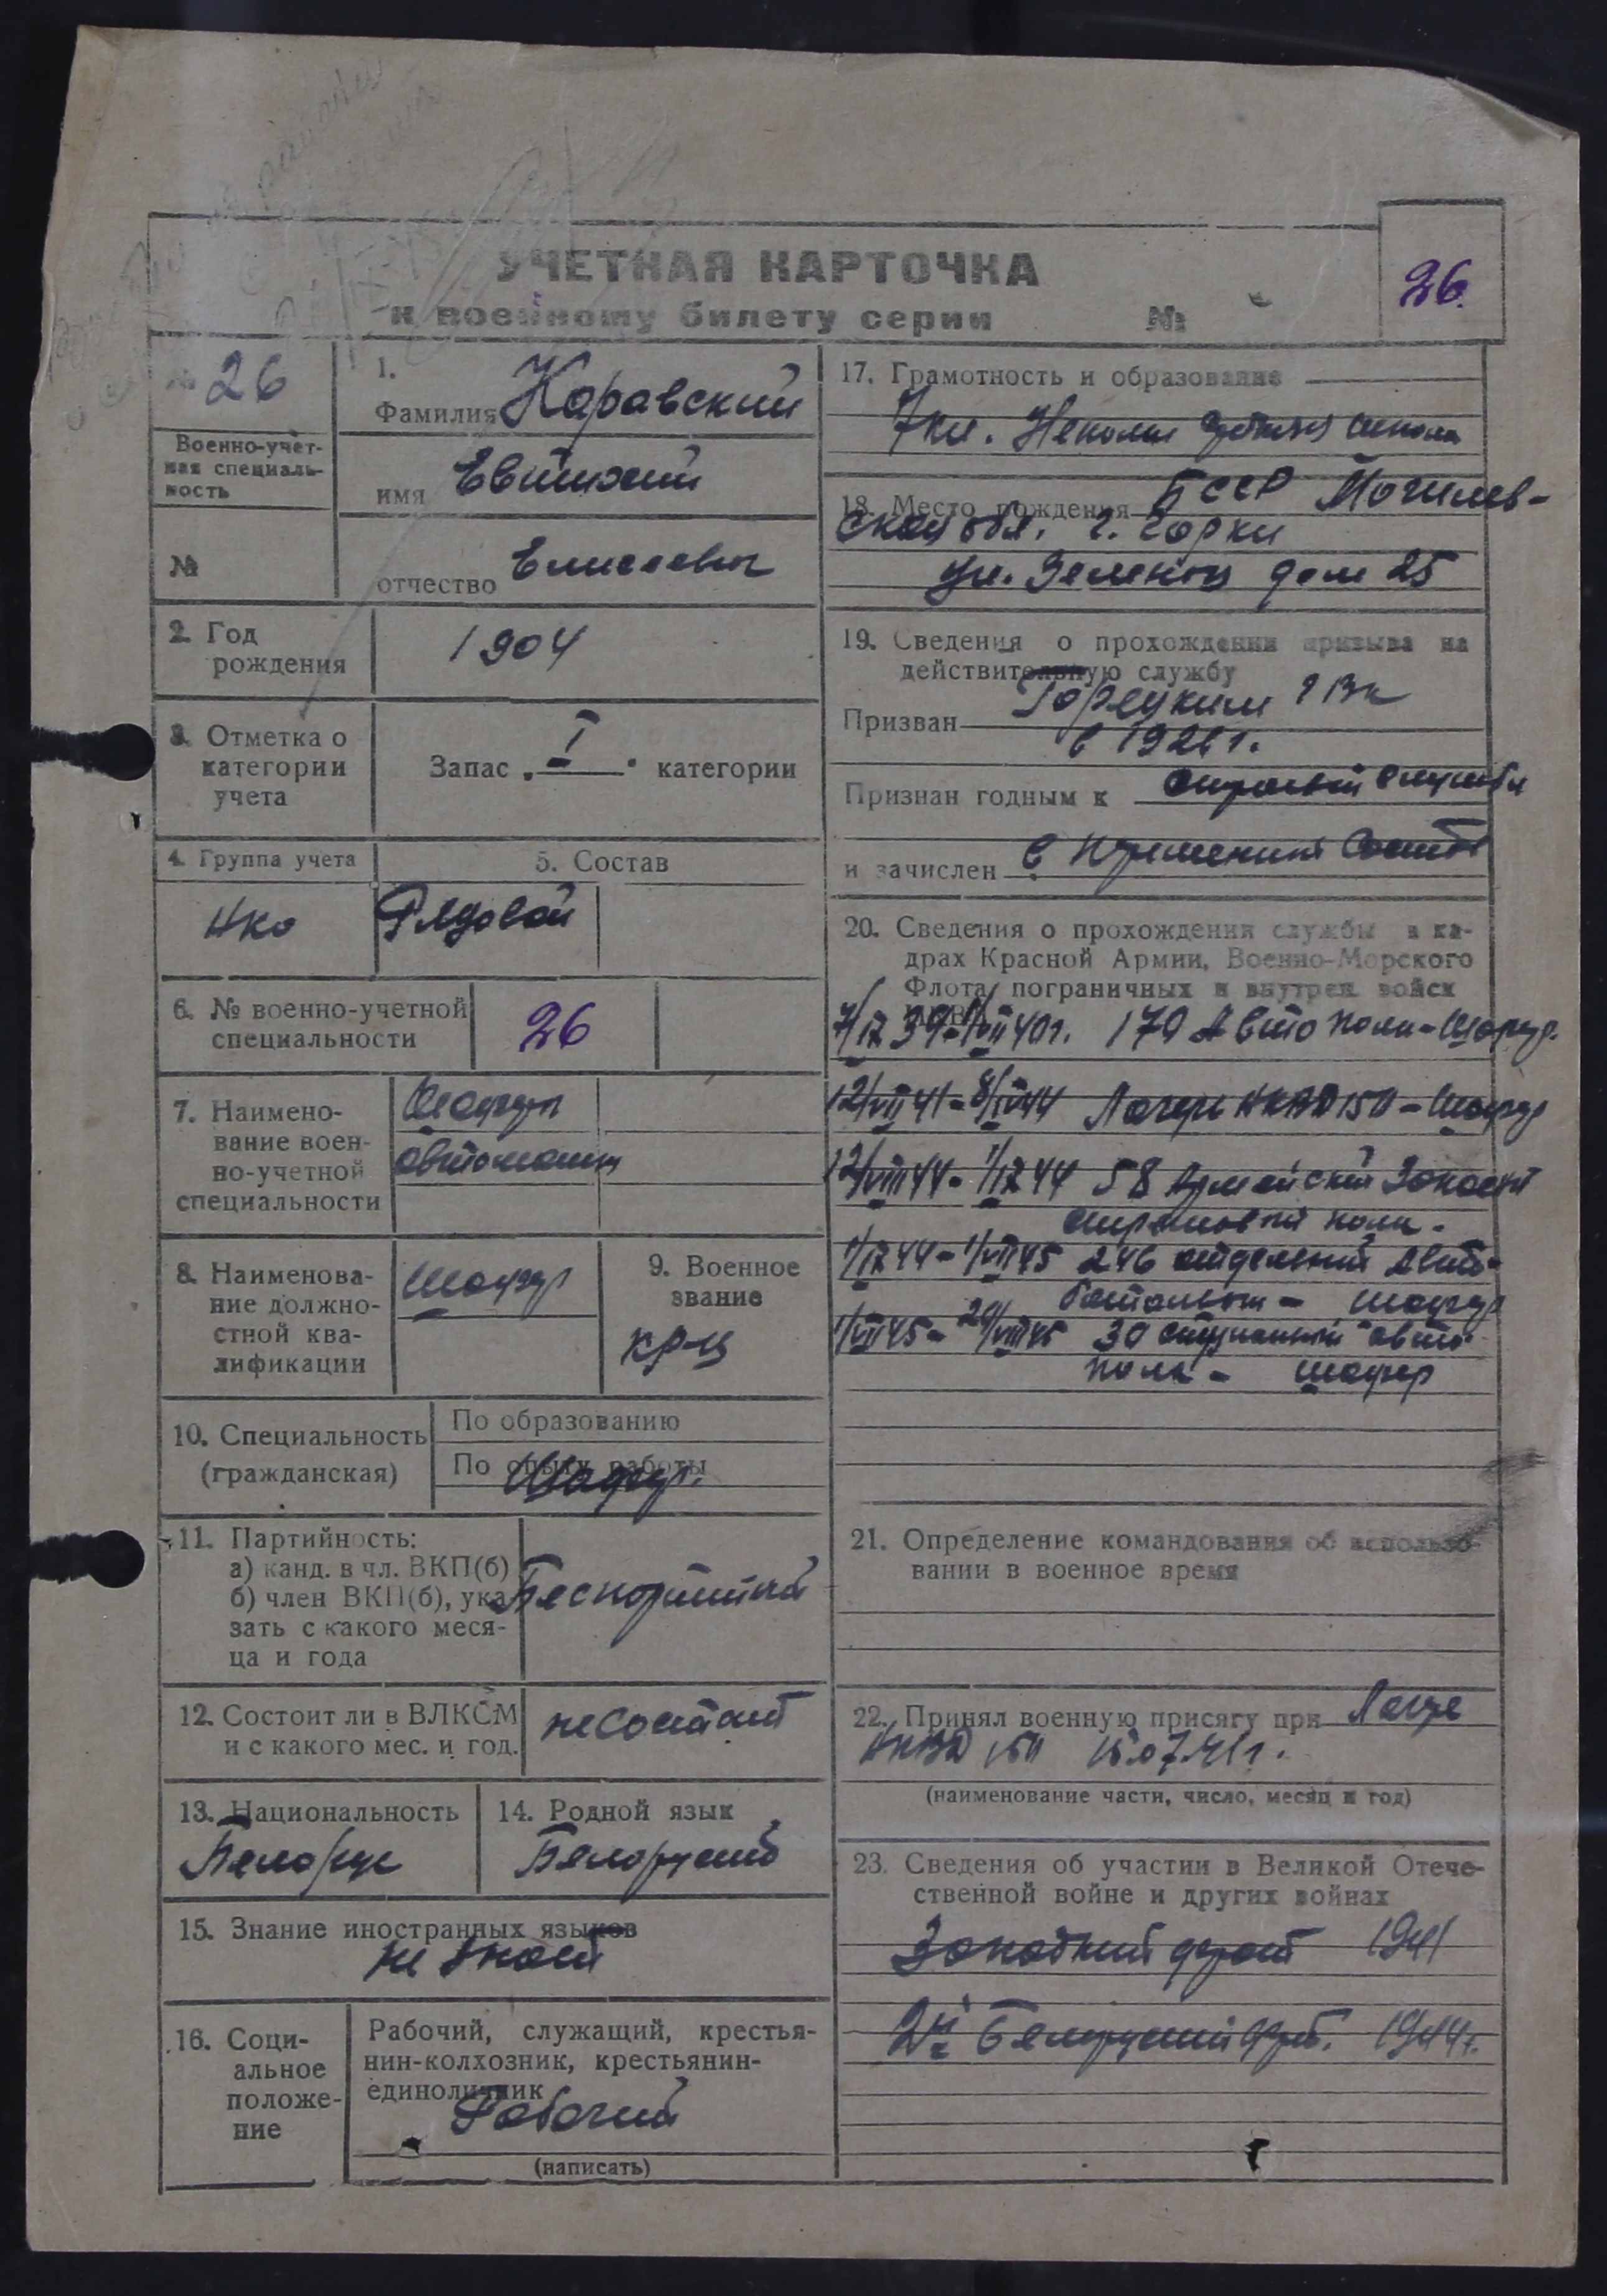 УЧЕТНАЯ КАРТОЧКА
к военному билету серии №
26.
№ 26
Военно-учет-
ная специаль-
ность
№
1.
Фамилия Каравский
имя Евтихий
отчество Елисеевич
2. Год
рождения
1904
3. Отметка о
категории
учета
Запас „I“ категории
4. Группа учета
5. Состав
Нко
Рядовой
6. № военно-учетной
специальности
26
7. Наимено-
вание воен-
но-учетной
специальности
Шофер
автомашин
8. Наименова-
ние должно-
стной ква-
лификации
Шофер
9. Военное
звание
кр-ц
10. Специальность
(гражданская)
По образованию
По опыту работы
Шофер.
11. Партийность:
а) канд. в чл. ВКП(б)
б) член ВКП(б), ука-
зать с какого меся-
ца и года
Беспартийный
12. Состоит ли в ВЛКСМ
и с какого мес. и год.
не состоит
13. Национальность
Белорус
14. Родной язык
Белорусский
15. Знание иностранных языков
не знает
16. Соци-
альное
положе-
ние
Рабочий, служащий, крестья-
нин-колхозник, крестьянин-
единоличник
Рабочий
(написать)
17. Грамотность и образование
7 кл. школа
18. Место рождения БССР Могилев-
ская обл. г. Горки
ул. Зеленая дом 25
19. Сведения о прохождении призыва на
действительную службу
Призван Горецким РВК
в 1926 г.
Признан годным к строевой службе
и зачислен в
20. Сведения о прохождении службы в ка-
драх Красной Армии, Военно-Морского
Флота, пограничных и внутрен. войск
НКВД
7/IX 39 - 40г. 170 Авто полк - Шофер.
12/VII 41 - 44 Лагерь НКВД 150 - Шофер
12/VIII 44 - 1/IX 44 58 Армейский Запасной
стрелковый полк -
1/IX 44 - 1/VII 45 246 отдельный Авто-
батальон - шофер
1/VII 45 - 20/VIII 45 30 авто
полк - шофер
21. Определение командования об использо-
вании в военное время
22. Принял военную присягу при Лагере
НКВД 150 15.07.41г.
(наименование части, число, месяц и год)
23. Сведения об участии в Великой Отече-
ственной войне и других войнах
Западный фронт 1941
2й Белорусский фрт. 1944г.